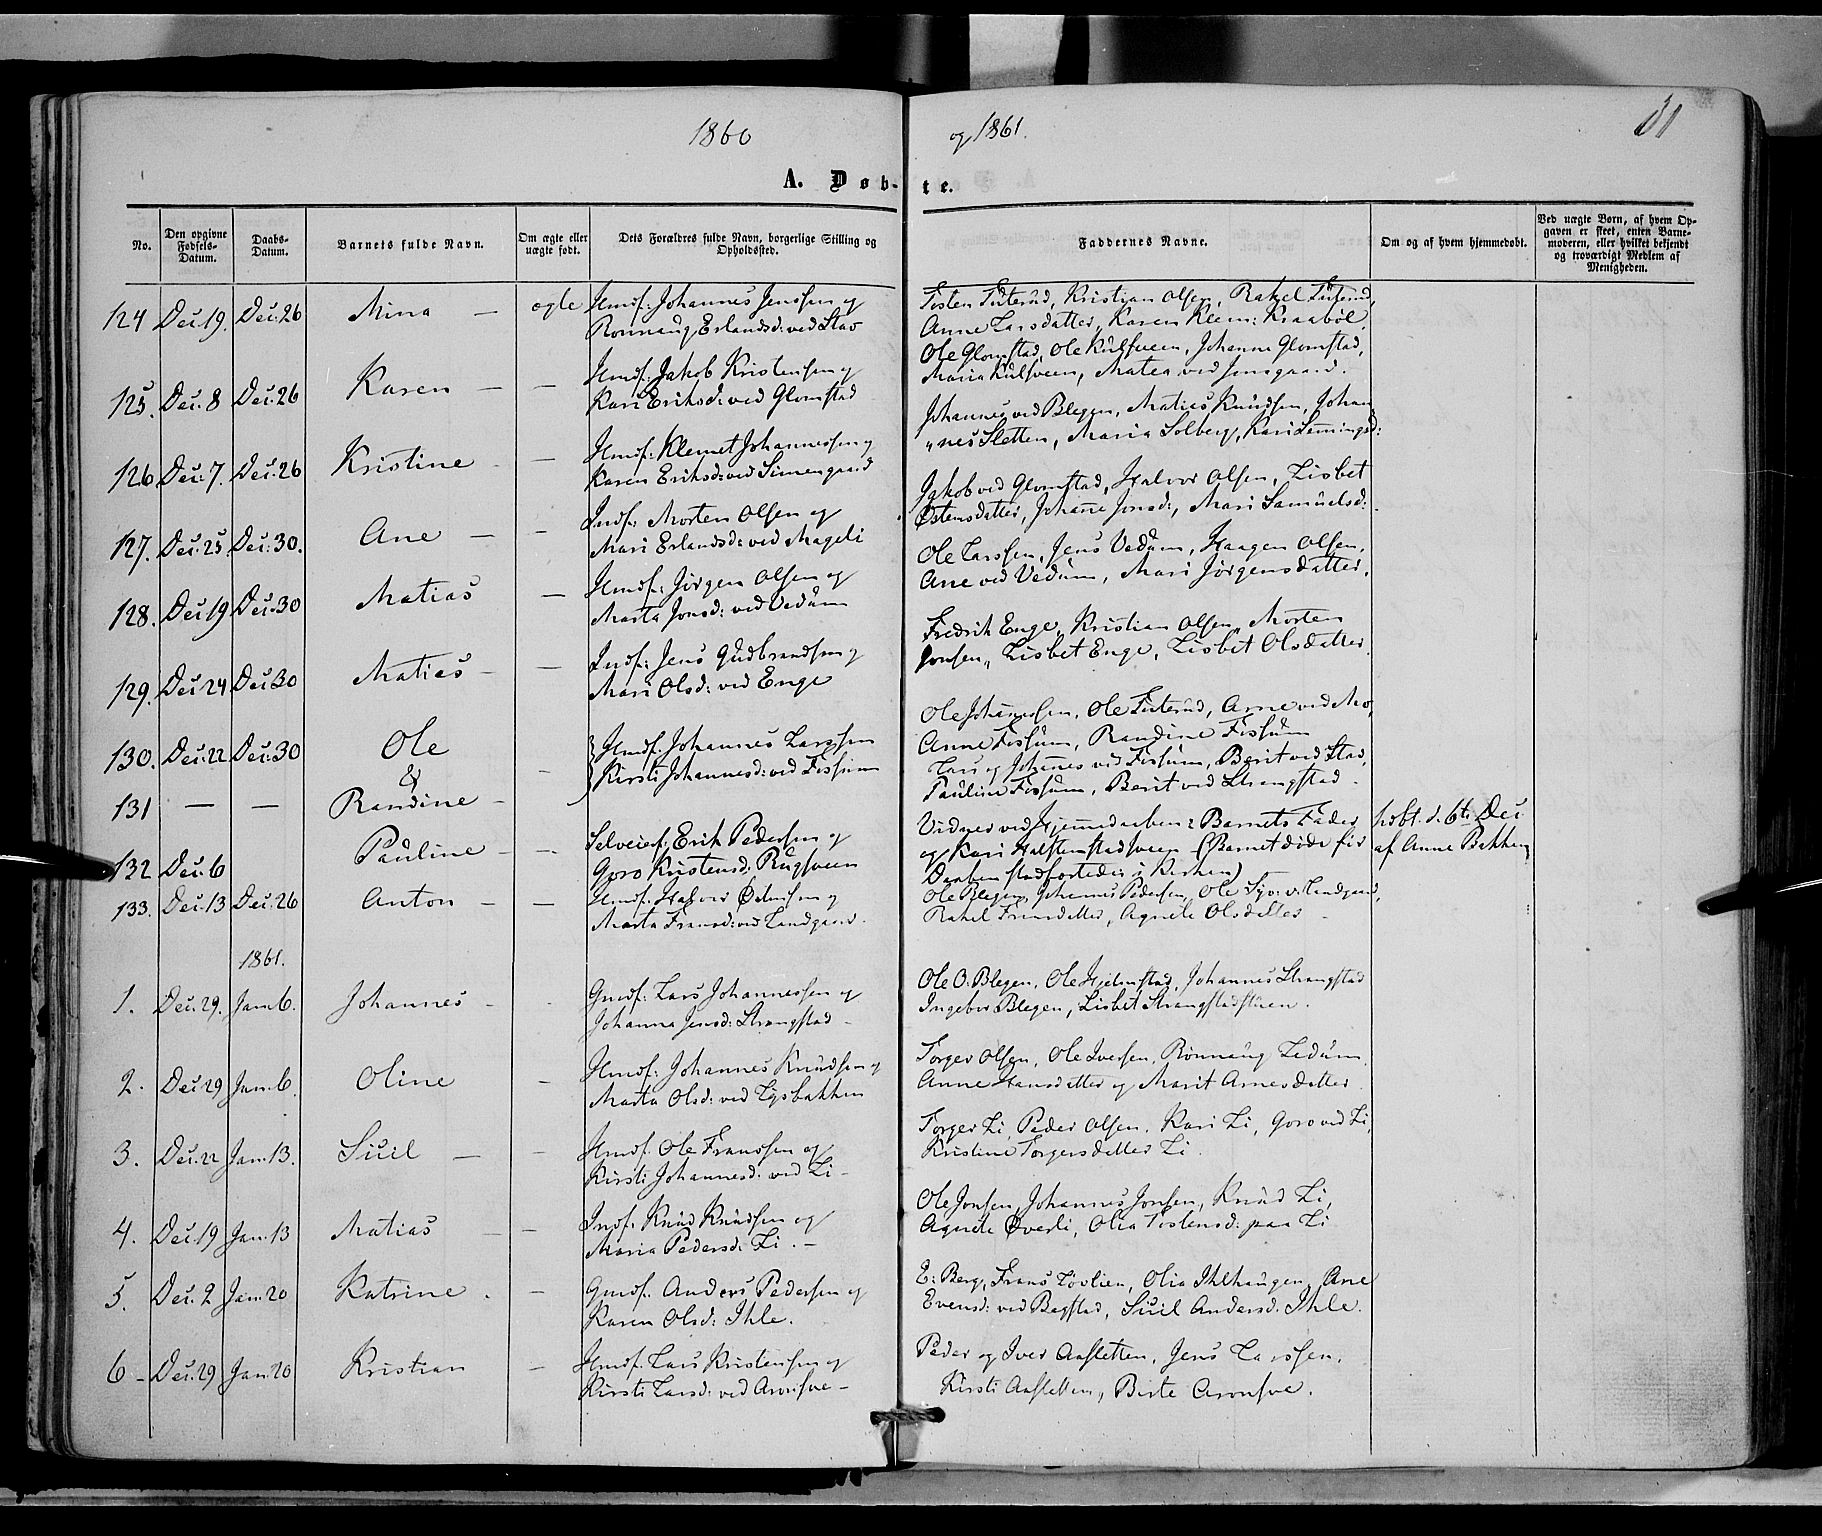 1860
og 1861.
31
A. Døb-
te.
No.
Den opgivne Fødsels-Datum.
Daabs-Datum.
Barnets fulde Navn.
Om ægte eller uægte født.
Dets Forældres fulde Navn, borgerlige Stilling og Opholdssted.
Faddernes Navne.
Om og af hvem hjemmedøbt.
Ved uægte Børn, af hvem Op-
gaven er skeet, enten Barne-
moderen, eller hvilket bekjendt
og troværdigt Medlem af
Menigheden.
124 Dec: 19. Dec: 26 Mina — ægte Hmdf: Johannes Jenssen og
Ronnaug Erlandsd: ved Stav
Tosten Listerud, Kristian Olsen, Rakel Listerud,
Anne Larsdatter, Karen Klem: Kraabøl
125. Dec: 8 Dec: 26 Karen — — Hmdf: Jakob Kristensen og
Kari Eriksd: ved Glomstad
Ole Glomstad, Ole Kulsveen, Johanne Glomstad,
Maria Kulsveen, Matea ved Jonsgaard.
126 Dec: 7. Dec: 26 Kristine — Hmdf: Klemet Johannessen og
Karen Eriksd: ved Simengaard
Johannes ved Blegen, Matias Knudsen, Johan
"nes Sletten, Maria Solberg, Kari Hemmingsd:
127. Dec: 25 Dec: 30. Ane — — Indf: Morten Olsen og
Mari Erlandsd: ved Mageli
Jakob ved Glomstad, Halvor Olsen, Lisbet
Østensdatter, Johane Jonsd:, Mari Samuelsd:
128. Dec: 19 Dec: 30 Matias — Hmdf: Jørgen Olsen og
Marta Jonsd: ved Vedum
Ole Larssen, Jens Vedum, Haagen Olsen,
Ane ved Vedum, Mari Jørgensdatter.
129. Dec: 24 Dec: 30 Matias — — Indf: Jens Gudbrandsen og
Mari Olsd: ved Enge
Fredrik Enge, Kristian Olsen, Morten
Jonsen, Lisbet Enge, Lisbet Olsdatter.
130. Dec: 22 Dec: 30 Ole — Hmdf: Johannes Larssen
Kirsti Johannesd: ved Fossum
Ole Johannessen, Ole Listerud, Arne ved Mo,
Anne Fossum, Randine Fossum
&
131 — — Randine —
Lars og Johannes ved Fossum, Berit ved Stad,
Pauline Fossum, Berit ved Strangstad.
132 Dec: 6 Pauline — — Selveierf: Erik Pedersen og
Goro Kristensd: Rugsveen
Vidner ved Hjemmedaaben: Barnets Fader
og Kari Halstenstadsveen (Barnet døde før
Daaben stadfæstedes i Kirken)
høbt. d. 6te Dec
af Anne Bakken
133. Dec: 13 Dec: 26 Anton — — Hmdf: Halvor Østensen og
Marta Fransd: ved Landgaard.
Ole Blegen, Johannes Pedersen, Ole Syv: v. Landgaard,
Rakel Fransdatter, Agnete Olsdatter
1861.
1. Dec: 29. Jan: 6. Johannes - - Gmdf: Lars Johannessen og
Johanna Jensd: Strangstad —
Ole O: Blegen, Ole Hjelmstad, Johannes Strangstad
Ingebor Blegen, Lisbet Strangstadstuen.
2. Dec: 29 Jan: 6. Oline — Hmdf: Johannes Knudsen og
Marta Olsd: ved Lysbakken
Torger Olsen, Ole Iversen, Rønnaug Ledum
Anne Hansdatter og Marit Arnesdatter.
3. Dec: 22 Jan: 13. Siül — — Hmdf: Ole Franssen og
Kirsti Johannesd: ved Li —
Torger Li, Peder Olsen, Kari Li, Goro ved Li,
Kristine Torgersdatter Li.
4. Dec: 19 Jan: 13 Matias — — Indf: Knud Knudsen og
Maria Pedersd: Li. —
Ole Jonsen, Johannes Jonsen, Knud Li,
Agnete Øverli, Olia Tostensd: paa Li
5. Dec: 2 Jan: 20 Katrine. — Gmdf: Anders Pedersen og
Karen Olsd: Ihle.
E: Berg, Frans Løvlien, Olia Ihlhaugen, Ane
Evensd: ved Bøgstad, Siül Andersd: Ihle.
6 — Dec: 29 Jan: 20 Kristian — Hmdf: Lars Kristensen og
Kirsti Larsd: ved Aronsve —
Peder og Iver Aasletten, Jens Larssen,
Kirsti Aasletten, Birte Aronsve.